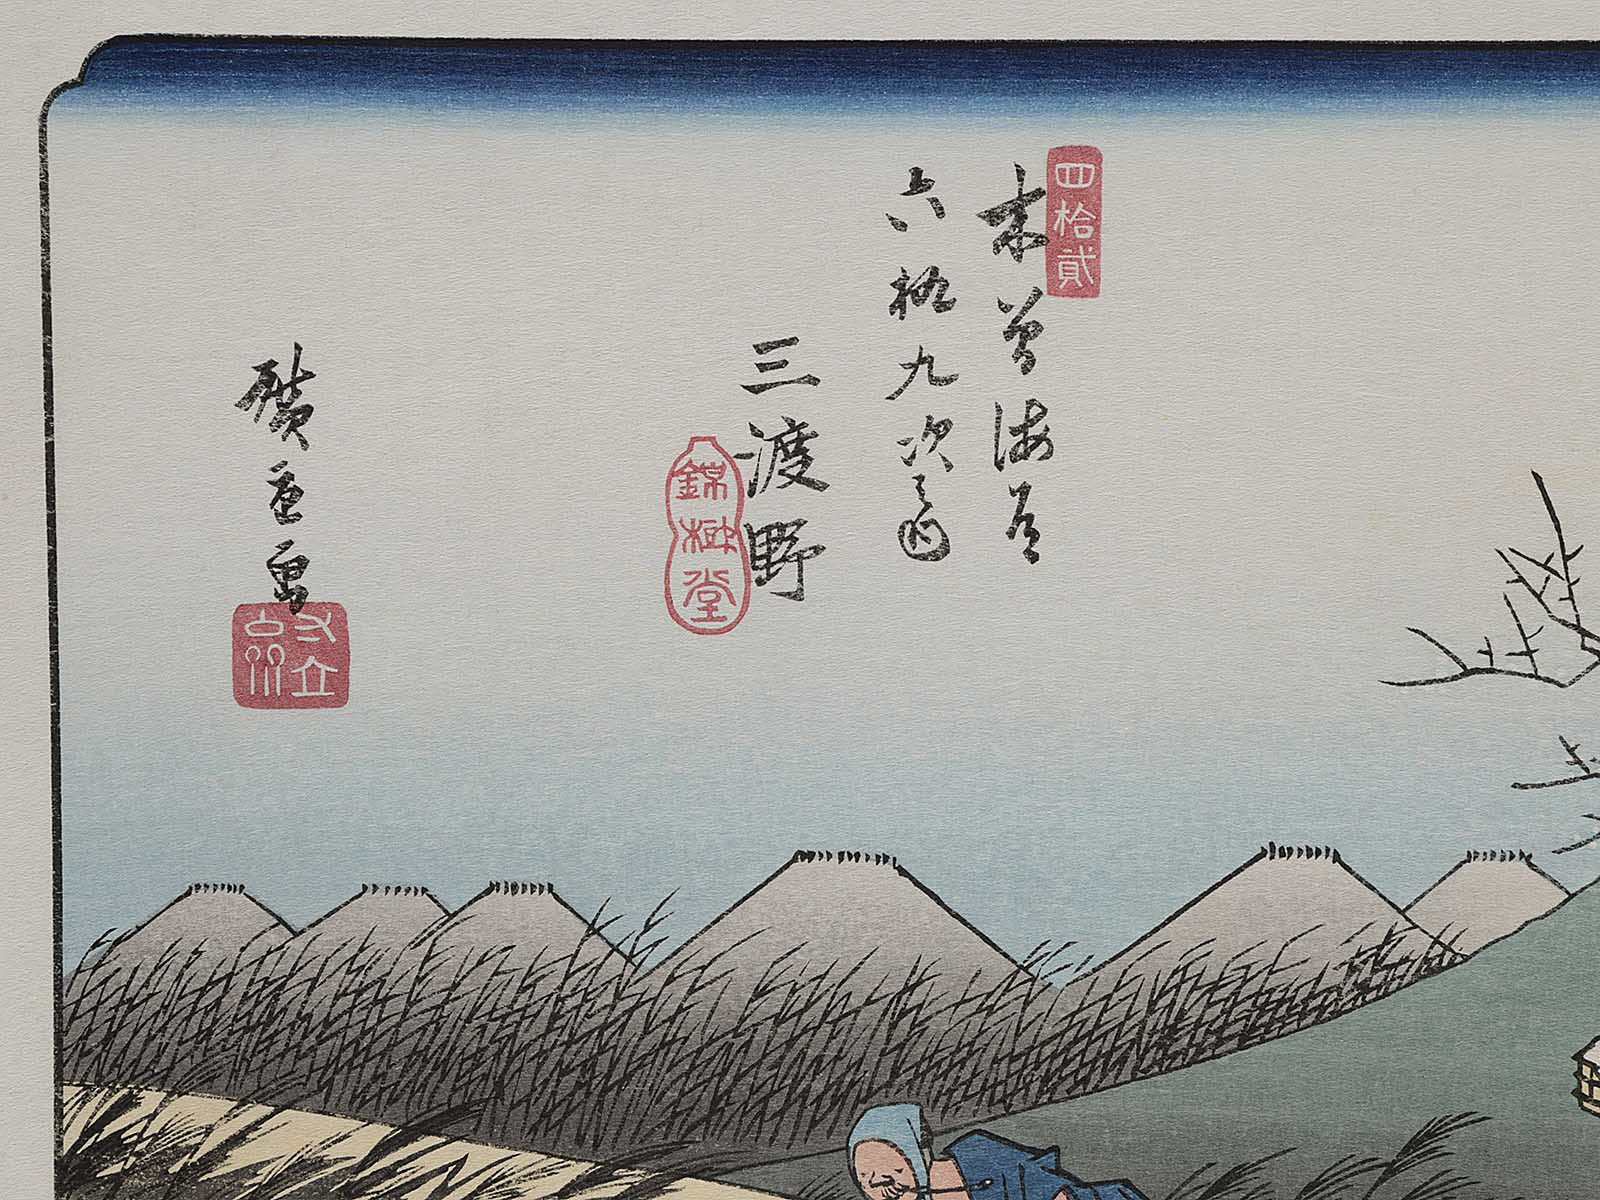 四拾貳
木曾海道
六拾九次之内
三渡野
錦樹堂
廣重画